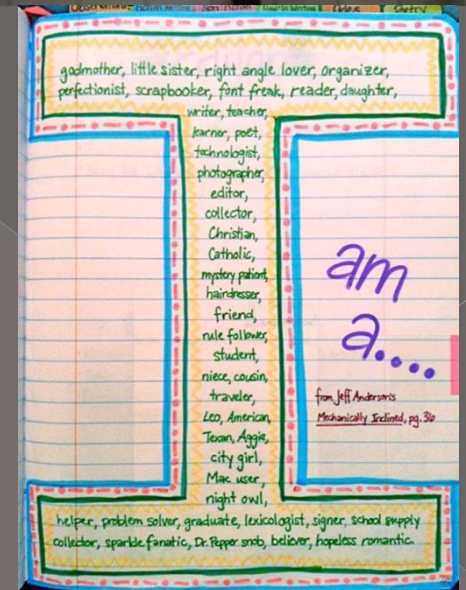 Poetry
godmother, little sister, right angle lover, organizer,
perfectionist, scrapbooker, font freak, reader, daughter,
writer, teacher,
learner, poet,
technologist,
photographer,
editor,
collector,
Christian,
Catholic,
mystery patient,
hairdresser,
friend,
rule follower,
student,
niece, cousin,
traveler,
Leo, American,
Texan, Aggie,
city girl,
Mac user,
night owl,
helper, problem solver, graduate, lexicologist, signer, school supply
collector, sparkle fanatic, Dr. Pepper snob, believer, hopeless romantic.
am
a....
from Jeff Anderson's
Mechanically Inclined, pg. 36